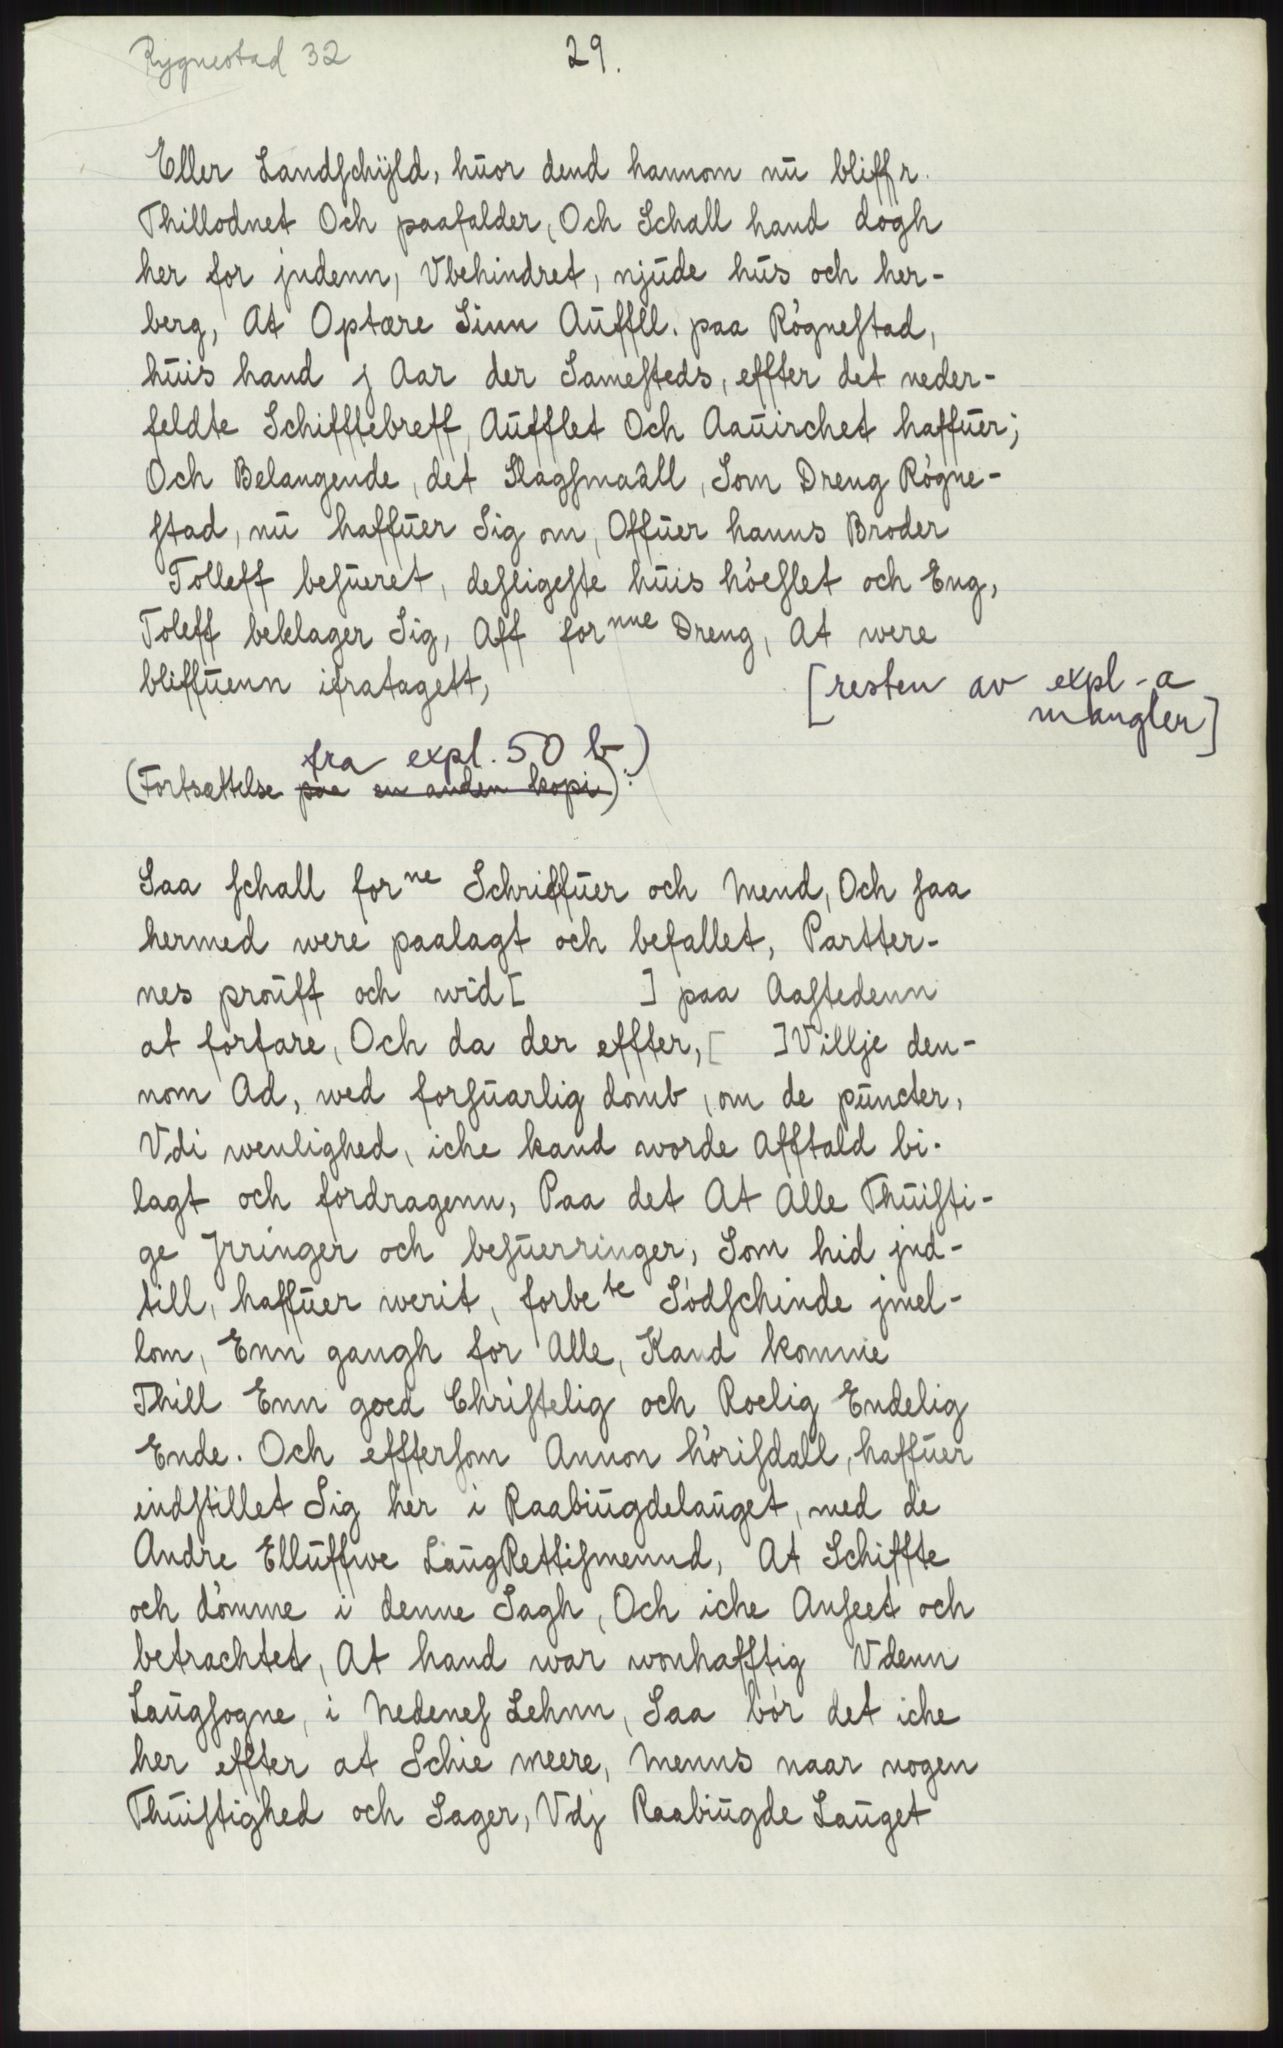 Rygnestad 32
29.
Eller Landschÿld, huor dend hannom nu bliffr.
Thillodnet Och paafalder, Och Schall hand dogh
her for jndenn, Vbehindret, njude hus och her-
berg, At Optære Sinn Auffll. paa Rögnestad,
huis hand j Aar der Samesteds, effter det neder-
feldte Schifftebreff, Aufflet Och Aauirchet haffuer;
Och Belangende, det Slagsmaåll, Som Dreng Rögne-
stad, nu haffuer Sig om, Offuer hanns Broder
Tolleff besueret, desligeste huis höeslet och Eng,
Toleff beklager Sig, Aff for nne Dreng, At were
bliffuenn ifratagett,
[resten av expl-a
mangler]
fra expl. 50 b)
(Fortsættelse paa en anden kopi):
Saa schall for ne Schriffuer och Mend, Och saa
hermed were paalagt och befallet, Partter-
nes prouff och wid [ ] paa Aastedenn
at forfare, Och da der effter, [ ] Villje den-
nom Ad, wed forsuarlig domb, om de puncter,
Vdi wenlighed, iche kand worde Afftald bi-
lagt och fordragenn, Paa det At Alle Thuisti-
ge Jrringer och besuerringer, Som hid jnd-
till, haffuer werit, forbe te Södschinde jmel-
lom, Enn gangh for Alle, Kand komme
Thill Enn goed Christelig och Roelig Endelig
Ende. Och efftersom Annon hörisdall, haffuer
eindstillet Sig her i Raabiugdelauget, med de
Andre Elluffwe LaugRettismennd, At Schiffte
och dömme i denne Sagh, Och iche Anseet och
betrachtet, At hand war wonhafftig Vdenn
Laugsogne, i Nedenes Lehnn, Saa bör det iche
her effter at Schie meere, Menns naar nogen
Thuistighed och Sager, Vdj Raabiugde Lauget